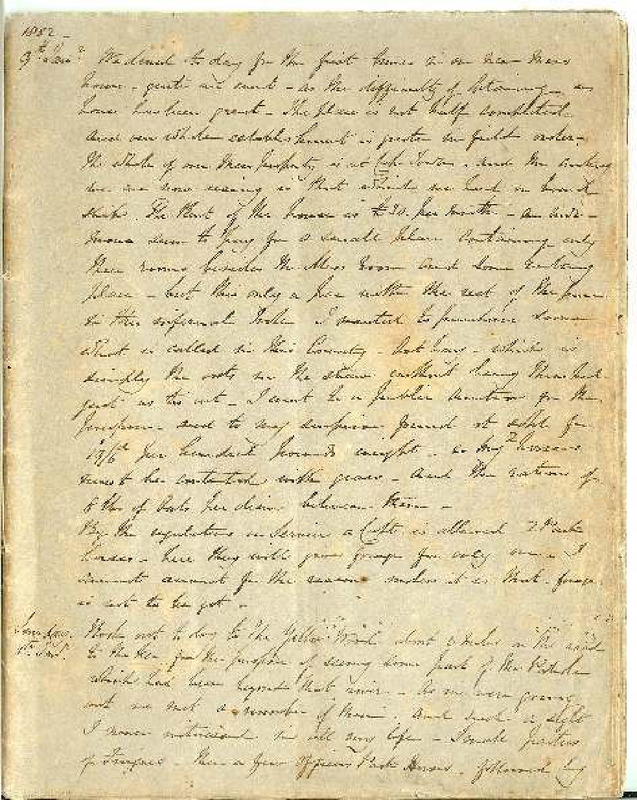 1852 -
9th Jany We dined to day for the first time in our new Mess
house - quite an event - as the difficulty of obtaining a
house has been great - The place is not half completed
and our whole establishment is quite in field order -
The whole of our Mess property is at Cape Town - and the
we are now using is that which we had on board
ship. The Rent of the house is £30. per month - an
sum to pay for a small place containing only
three rooms besides the Mess room and some
place - but this only a par with the rest of the
in this infernal hole. I wanted to purchase some
what is called in this Country - Oat hay - which is
simply the oats in the straw without being thrashed
just as tis cut - I went to a public auction for the
purpose - and to my surprise found it sold for
19/6d per hundred pounds weight - so my horses
must be contented with grass - and the ration of
8 lbs of Oats per diem between them -
By the regulations in Service a Capt is allowed 2
horses - here they will give forage for only one - I
cannot account for the reason unless it is that forage
is not to be got -
Sunday
Jany Rode out to day to the Yellow Wood about miles on the road
to the for the purpose of seeing some part of the
which had been beyond that river - As we were going
out we met a number of them, and such a sight
I never witnessed in all my life - Small parties
of - then a few officers Pack Horses - followed by